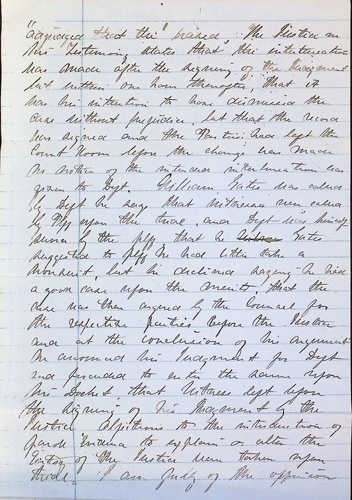 "adjudged that the" raised. The Justice in
his testimony states that the interlineation
was made after the signing of the Judgment
but within one hour thereafter, that it
was his intention to have dismissed the
case without prejudice, but that the record
was signed and the parties had left the
Court Room before the change was made
no notice of the intended interlineation was
given to Deft. William Yates was called
by Deft he says that witnesses were called
by Plff upon the trial, and Deft was being
sworn by the plff that he Yates
suggested to plff he had better take a
nonsuit, but he declined saying he had
a good case upon the merits, that the
case was then argued by the Counsel for
the respective parties before the Justice
and at the conclusion of his argument
he announced his Judgment for Deft
and proceeded to enter the same upon
his Docket that witness left upon
the signing of his Judgment by the
Justice objections to the introduction of
parole evidence to explain or alter the
entry of the Justice were taken upon
trial. I am fully of the opinion